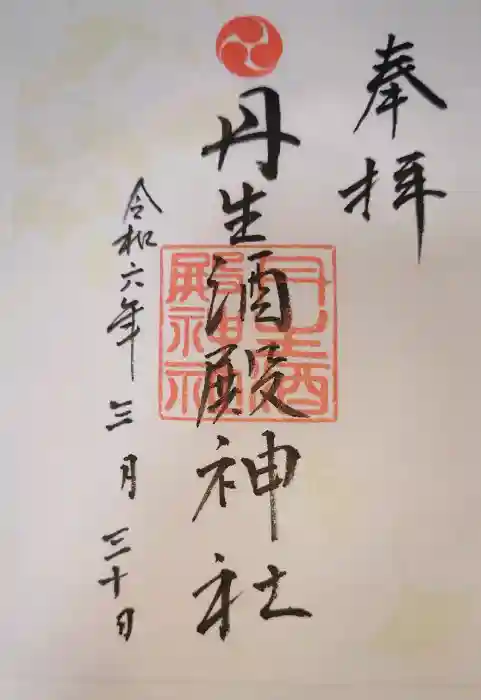 奉拝
丹生酒殿神社
丹生酒殿神社
令和六年三月三十日